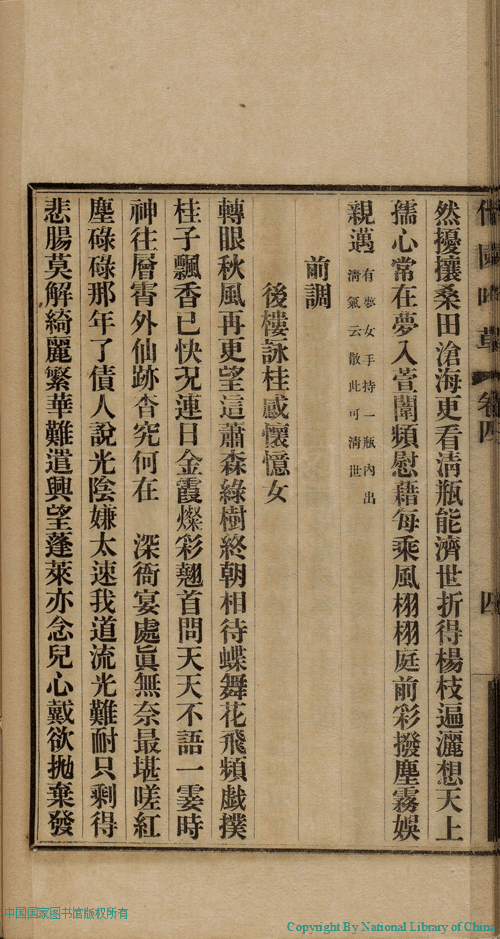 卷四
四
然擾攘桑田滄海更看清瓶能濟世折得楊枝遍灑想天上
孺心常在夢入萱闈頻慰藉每乘風栩栩庭前彩撥塵霧娛
親邁
有夢女手持一瓶內出
清氣云散此可清世
前調
後樓詠桂感懷憶女
轉眼秋風再更望這蕭森綠樹終朝相待蝶舞花飛頻戲撲
桂子飄香已快况連日金霞燦彩翹首問天天不語一霎時
神往層霄外仙跡杳究何在　深衙宴處眞無奈最堪嗟紅
塵碌碌那年了債人說光陰嫌太速我道流光難耐只剩得
悲腸莫解綺麗繁華難遣興望蓬萊亦念兒心戴欲拋棄發
中国国家图书馆版权所有
Copyright By National Library of China